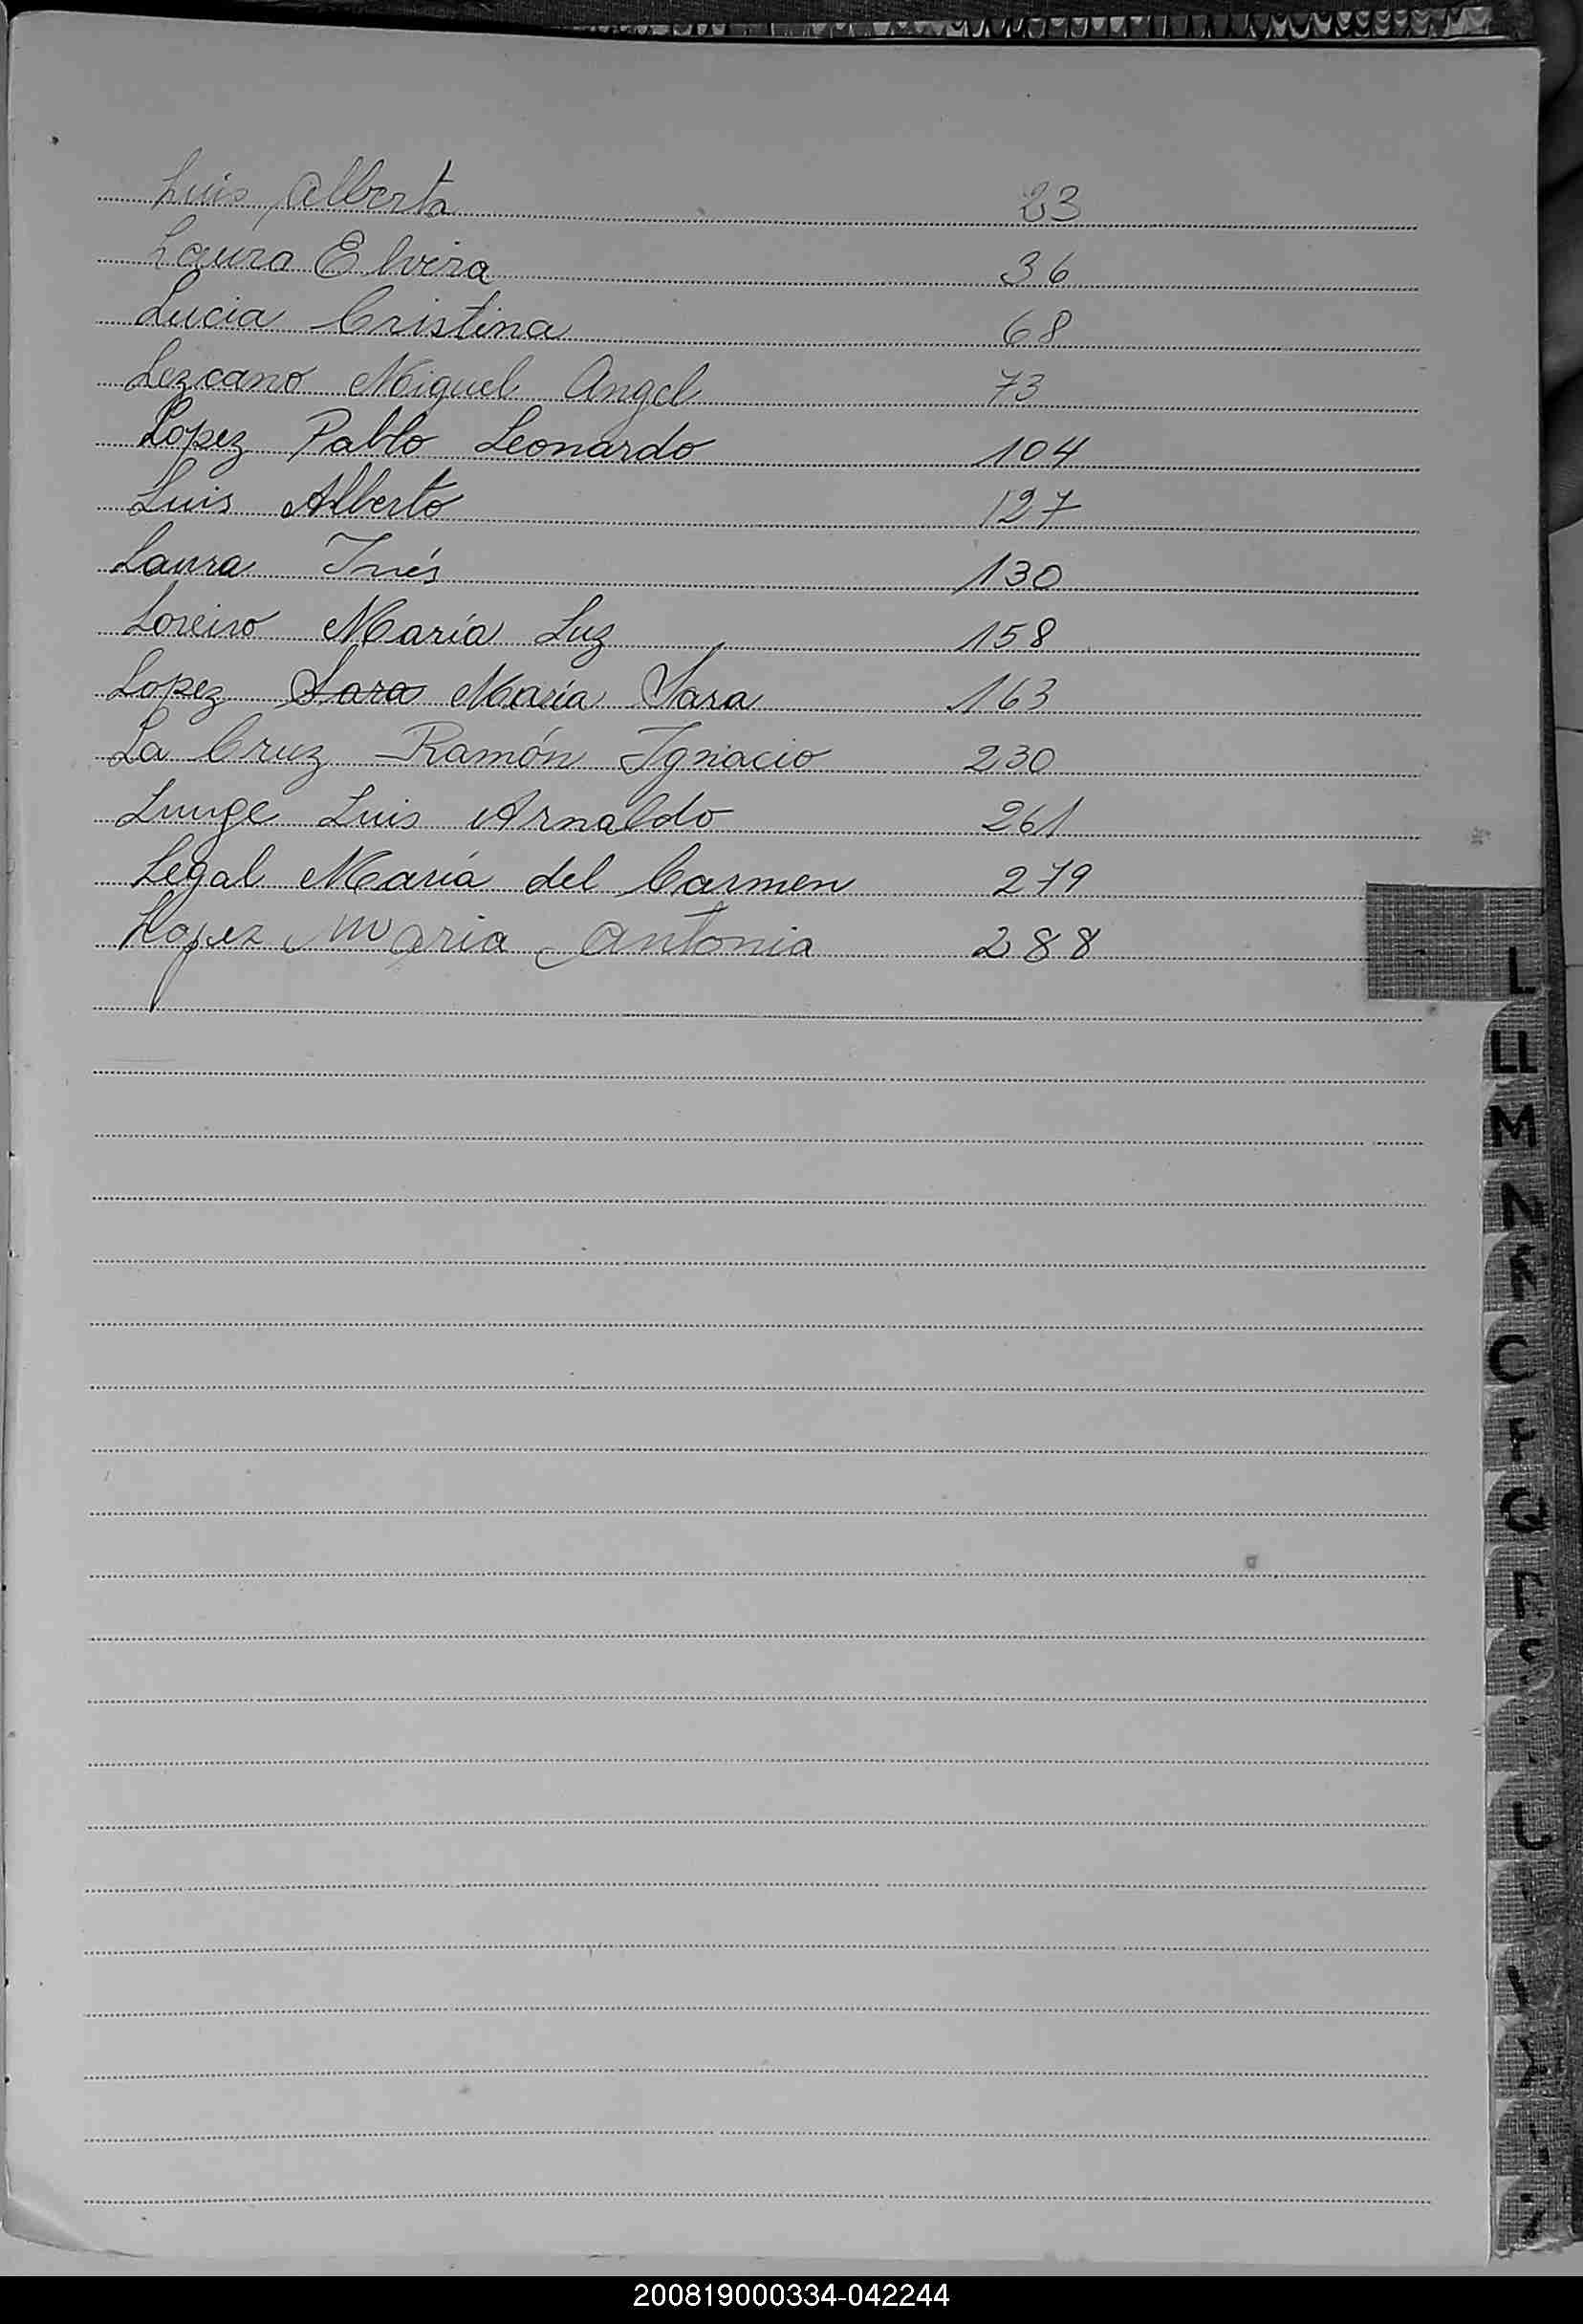 Luis Alberto 23
Laura Elvira 36
Lucia Cristina 68
Lezcano Miguel Angel 73
Lopez Pablo Leonardo 104
Luis Alberto 127
Laura Inés 130
Loreiro María Luz 158
Lopez Sara María Sara 163
La Cruz Ramón Ignacio 230
Lunge Luis Arnaldo 261
Legal María del Carmen 279
Lopez Maria Antonia 288
L
LL
M
N
Q
200819000334-042244